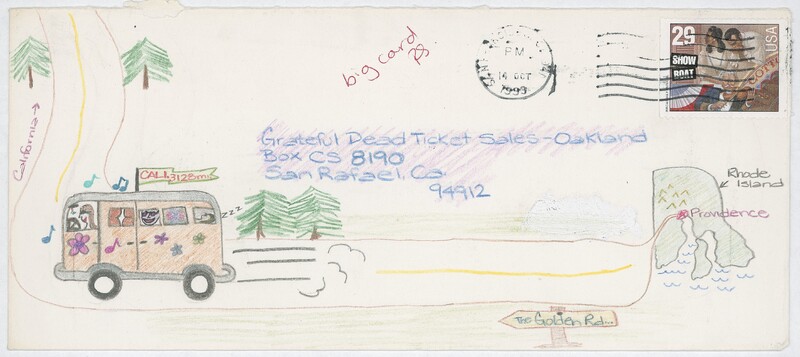 big card
ps.
PM
14 OCT
1993
29
USA
SHOW
BOAT
California
Grateful Dead Ticket Sales-Oakland
Box CS 8190
San Rafael, Ca.
94912
CALI. 3128 m.
zzz
Rhode
Island
Providence
The Golden Rd...